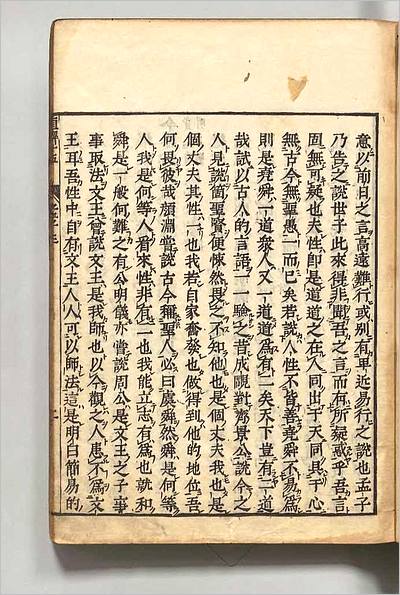 意以前日之言高遠難行或別有卑近易行之說也孟子
乃告之說世子此來得非聞吾之言而有所疑或乎吾言
固無可疑也夫性卽是道道之在人同出于天同具于心
無古今無聖愚一而已矣若說人性不皆善堯舜不易爲
則是堯舜一道衆人又一道道爲有二矣天下豈有二道
哉試以古人的言語一一驗之昔成覸對齊景公說今之
人見說箇聖賢便悚然畏之不知他也是個丈夫我也是
個丈夫其性一也我若自家奮發也做得到他的地位吾
何畏彼哉顏淵嘗說古今稱聖人必曰虞舜然舜是何等
人我是何等人看來性非有二也我能立志有爲也就和
舜是一般何難之有公明儀亦嘗說周公是文王之子事
事取法文王曾說文王是我師也以今觀之人患不爲文
王耳吾性中自有文王人人可以師法這是明白簡易的